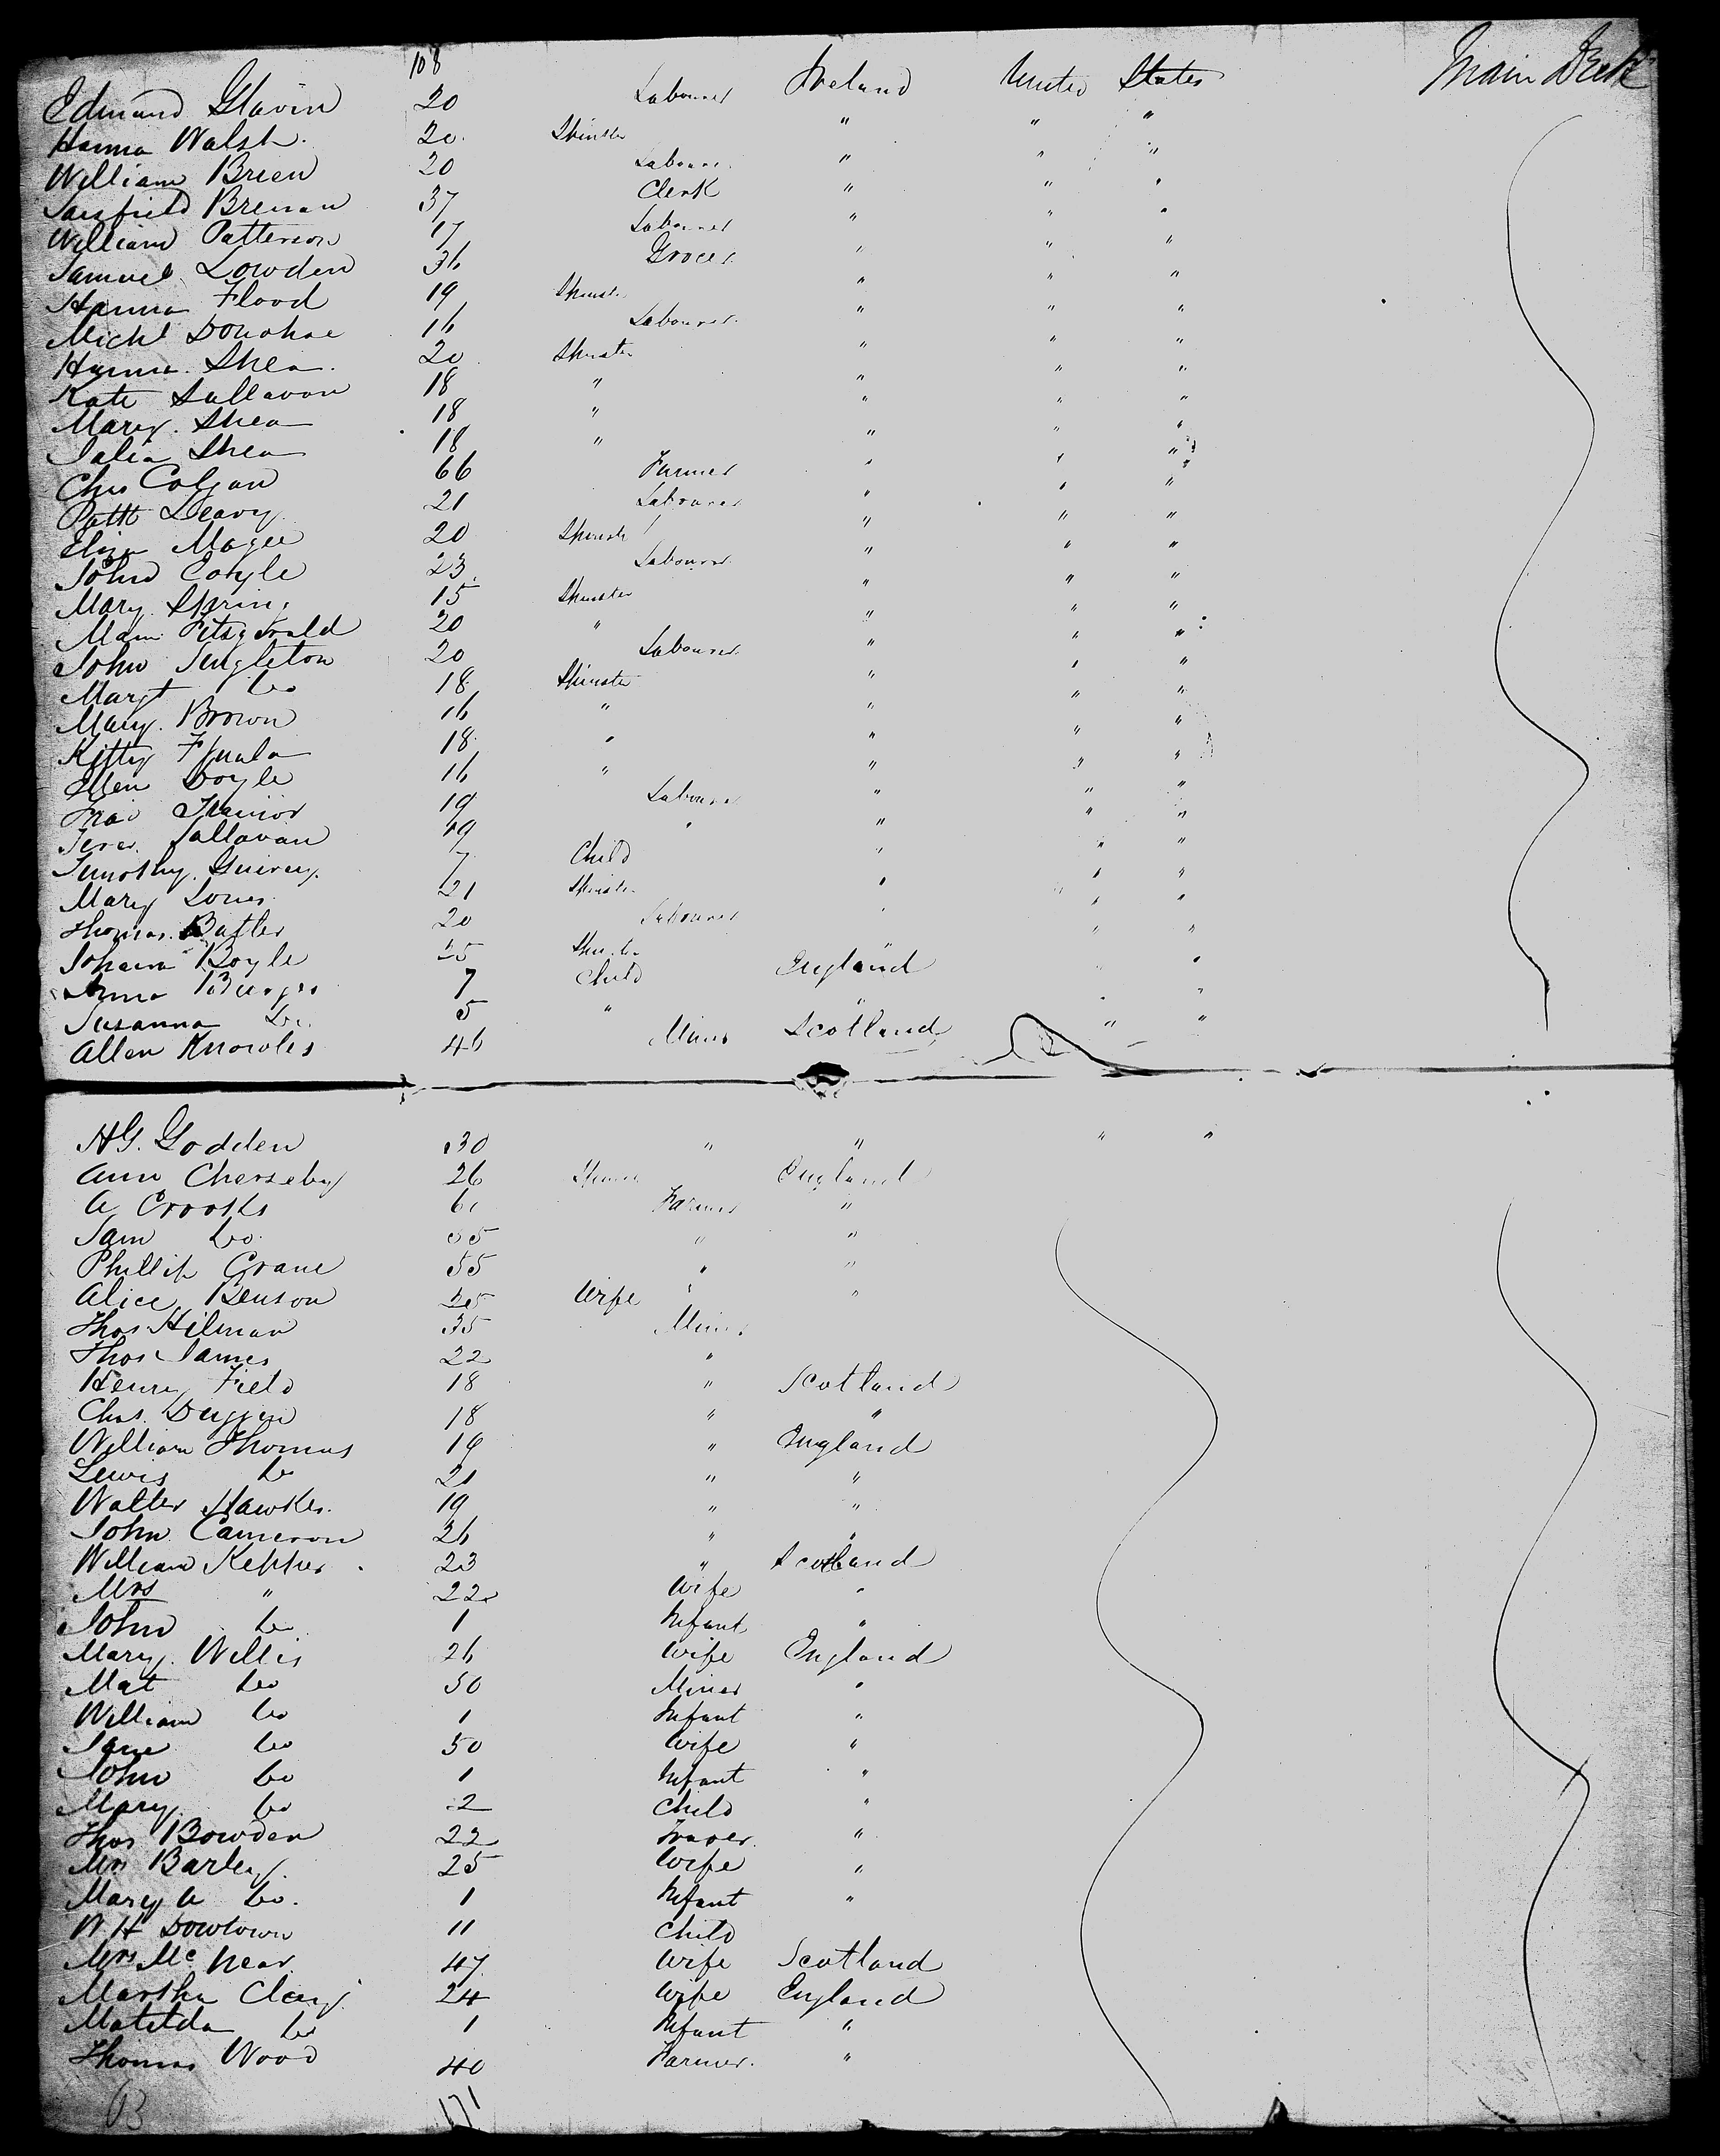 108
Edmund Glavin 20 Labourer Ireland United States Main Deck
Hanna Walsh. 20. Spinster " " "
William Brien 20 Labourer " " "
Sarsfield Brenan 37 Clerk " " "
William Patterson 17 Labourer " " "
Samuel Lowden 36 Grocer " " "
Hanna Flood 19 Spinster " " "
Michl Donohoe 16 Labourer " " "
Hanna Shea. 20 Spinster " " "
Kate Sullavan 18 " " " "
Mary Shea 18 " " " "
Julia Shea 18 " " " "
Chs Colgan 66 Farmer " " "
Patk Leavy 21 Labourer " " "
Eliza Magee 20 Spinster " " "
John Coyle 23 Labourer " " "
Mary Spring 15 Spinster " " "
Fitzgerald 20 " " " "
John Singleton 20 Labourer " " "
Margt Do 18 Spinster " " "
Mary Brown 16 " " " "
Kitty 18 " " " "
Ellen Doyle 16 " " " "
Trainor 19 Labourer " " "
Sullavan 49 " " " "
Timothy 7 Child " " "
Mary 21 Spinster " " "
Thomas Butler 20 Labourer " " "
Johana Boyle 25 Spinster " "
Anna Burges 7 Child England " "
Susanna Do. 5 " " " "
Allen Knowles 46 Miner Scotland " "
H.G. Godden 30 " " " "
Ann 26 England
A Crooks 6 Farmer "
Sam Do. "  "
Phillip Crane 55 " "
Alice Benson Wife " "
Thos Hilman 35 Miner
Thos James 22 "
Henry Field 18 " Scotland
Chas. Duggen 18 " "
William Thomas 19 " England
Lewis Do 21 " "
Walter Hawkes. 19 " "
John Cameron 26 " "
William 23 " Scotland
Mrs " 22 Wife "
John Do 1 Infant "
Mary Willis 26 Wife England
Mat Do 50 Miner "
William Do 1 Infant "
Jane Do 50 Wife "
John Do 1 Infant "
Mary Do 2 Child "
Thos Bowden 22 "
Mrs Barley 25 Wife "
Mary A Do. 1 Infant "
W.H. Dowtown 11 Child
Mrs Mc Near 47 Wife Scotland
Martha 24 Wife England
Matilda Do 1 Infant "
Thomas Wood 40 Farmer. "
63 171